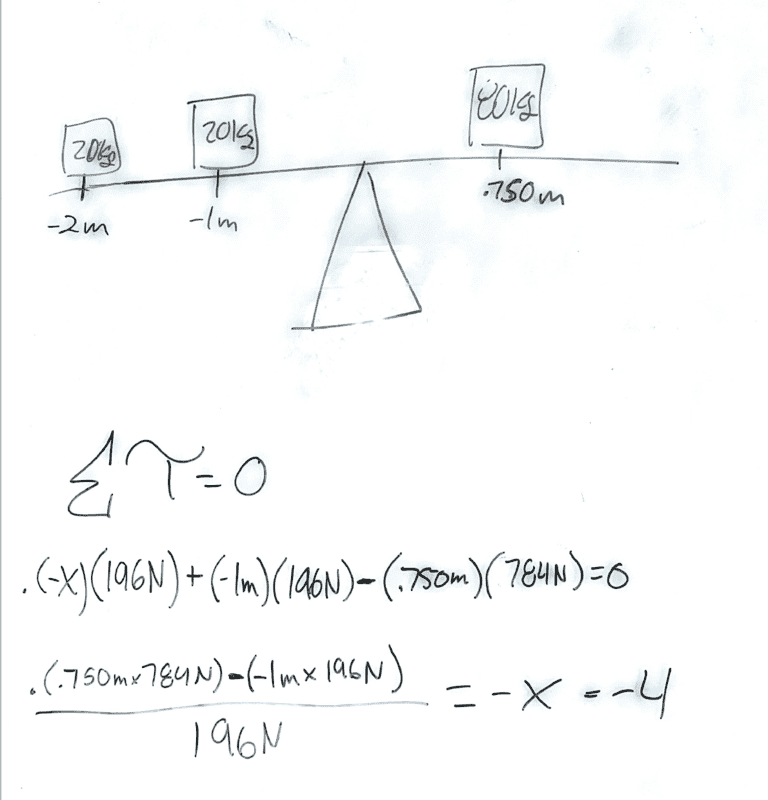 20kg 20kg 80kg
-2m -1m .750m
Στ=0
.(-x)(196N)+(-1m)(196N)-(.750m)(784N)=0
.(.750m×784N)-(-1m×196N)
196N
=-x=-4